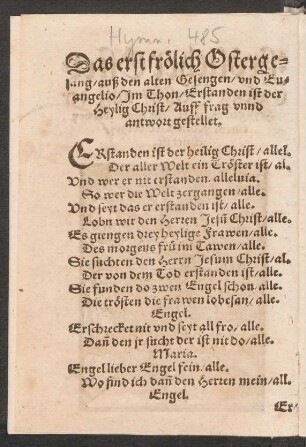 Hymn. 485
Das erst frölich Osterge-
sang/ auß den alten Gesengen/ vnd Eu-
angelio/ Im Thon/ Erstanden ist der
Heylig Christ/ Auff frag vnnd
antwort gestellet.
ERstanden ist der heilig Christ/ allel.
Der aller Welt ein Tröster ist/ al.
Vnd wer er nit erstanden. alleluia.
So wer die Welt zergangen/ alle.
Vnd seyt das er erstanden ist/ alle.
Lobn wir den Herren Jesũ Christ/ alle.
Es giengen drey heylige Frawen/ alle.
Des morgens frü im Tawen/ alle.
Sie suchten den Herrn Jesum Christ/ al.
Der von dem Tod erstanden ist/ alle.
Sie funden do zwen Engel schon. alle.
Die trösten die frawen lobesan/ alle.
Engel.
Erschrecket nit vnd seyt all fro/ alle.
Dañ den jr sucht der ist nit do/ alle.
Maria.
Engel lieber Engel fein. alle.
Wo find ich dañ den Herren mein/ all.
Engel.
Er-